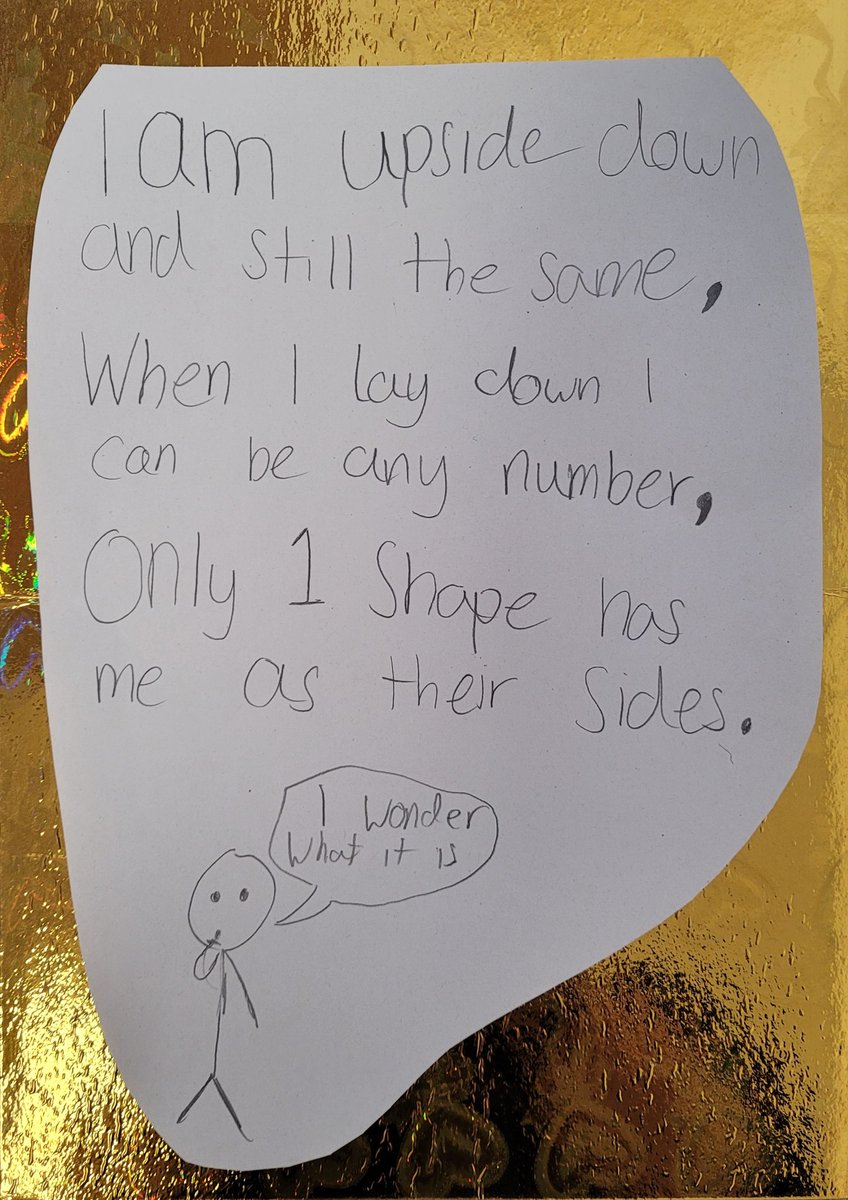 I am upside down
and still the same,
When I lay down I
can be any number,
Only 1 Shape has
me as their sides.
I wonder
what it is